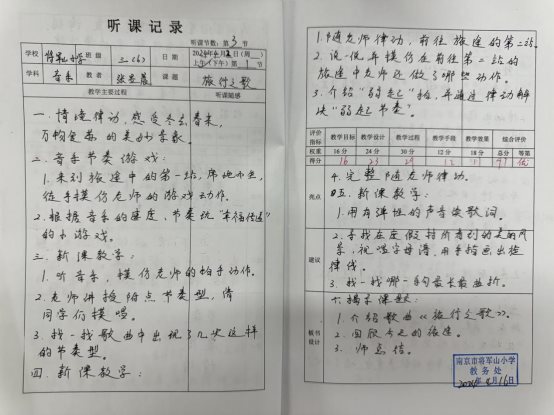 听课记录
听课节数：第 3 节
学校 将军山小学 班级 三(6) 日期 2024年4月 日（周 ）
上午（下午）第 1 节
学科 音乐 教者 课题 旅行之歌
教学主要过程 听课随感
一. 情境律动，感受冬去春来，
万物复苏的美妙景象。
二. 音乐节奏游戏：
1. 来到旅途中的第一站，席地而坐，
徒手模仿老师的游戏动作。
2. 根据音乐的速度、节奏玩“幸福传递”
的小游戏。
三. 新课教学：
1. 听音乐，模仿老师的拍手动作。
2. 老师讲授附点节奏型，请
同学们模唱。
3. 找一找歌曲中出现了几次这样
的节奏型。
四. 新课教学：
1. 随老师律动，前往旅途的第二站。
2. 说一说并模仿在前往第二站的
旅途中老师还做了哪些动作。
3. 介绍“弱起”拍，并通过律动解
决“弱起节奏”。
评价指标 教学目标 教学设计 教学过程 教学手段 教学效果 综合评价
权重 16分 24分 30分 12分 18分 总分 等第
得分 16 23 29 12 97 优
4. 完整随老师律动。
亮点
五. 新课教学：
1. 用有弹性的声音读歌词。
2. 寻找在度假村所看到的美丽风
建议
景，视唱字母谱，用手指画出旋
律线。
3. 找一找哪一句最长最曲折。
六. 揭示课题：
1. 介绍歌曲《旅行之歌》。
板书设计
2. 回顾今天的旅途。
3. 师总结。
南京市将军山小学
教务处
2024年4月16日